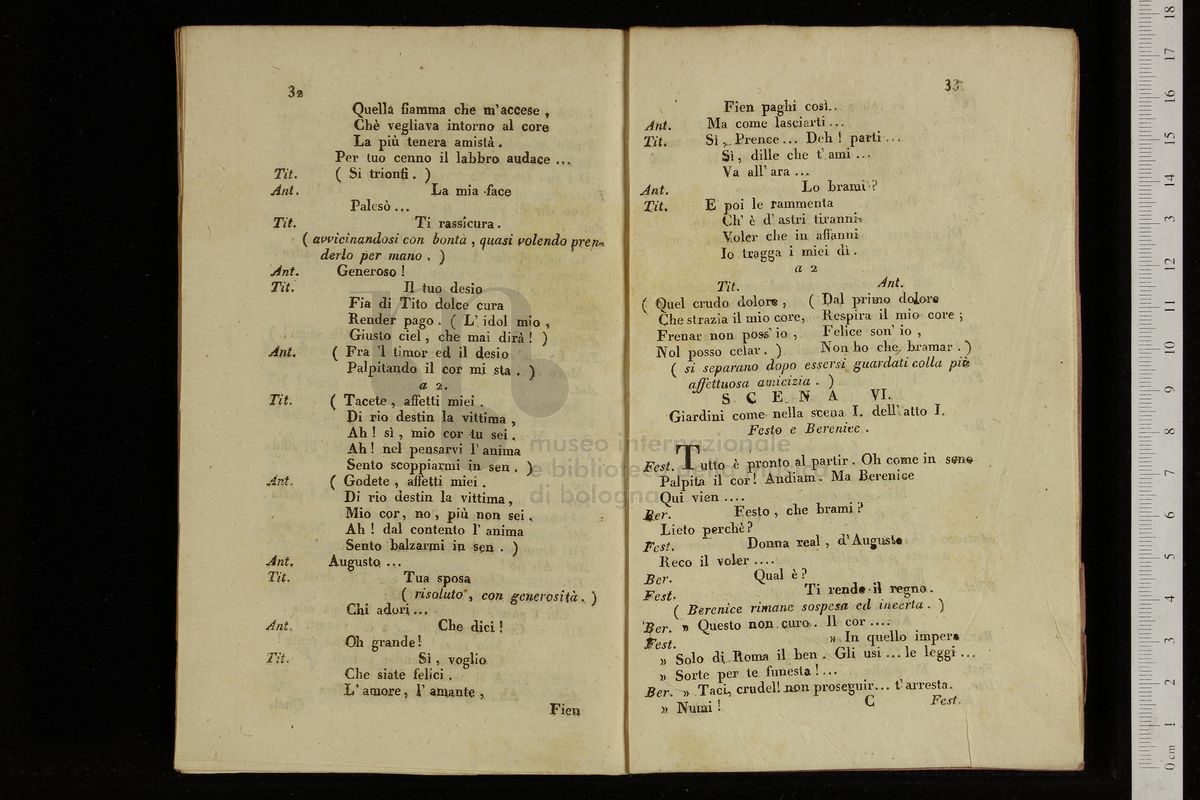 32
Quella fiamma che m'accese ,
Chè vegliava intorno al core
La più tenera amistà .
Per tuo cenno il labbro audace ...
Tit. ( Si trionfi . )
Ant. La mia face
Palesò ...
Tit. Ti rassicura .
( avvicinandosi con bontà , quasi volendo pren-
derlo per mano . )
Ant. Generoso !
Tit. Il tuo desio
Fia di Tito dolce cura
Render pago . ( L' idol mio ,
Giusto ciel , che mai dirà ! )
Ant. ( Fra 'l timor ed il desio
Palpitando il cor mi sta . )
a 2.
Tit. ( Tacete , affetti miei .
Di rio destin la vittima ,
Ah ! sì , mio cor tu sei .
Ah ! nel pensarvi l' anima
Sento scoppiarmi in sen . )
Ant. ( Godete , affetti miei .
Di rio destin la vittima ,
Mio cor, no , più non sei .
Ah ! dal contento l' anima
Sento balzarmi in sen . )
Ant. Augusto ...
Tit. Tua sposa
( risoluto , con generosità . )
Chi adori ...
Ant. Che dici !
Oh grande !
Tit. Sì , voglio
Che siate felici .
L' amore, l' amante ,
Fien
33
Fien paghi così..
Ant. Ma come lasciarti ...
Tit. Sì , Prence ... Deh ! parti ...
Sì , dille che t' ami ...
Va all' ara ...
Ant. Lo brami ?
Tit. E poi le rammenta
Ch' è d' astri tiranni
Voler che in affanni
Io tragga i miei dì .
a 2
Tit. Ant.
( Quel crudo dolore , ( Dal primo dolore
Che strazia il mio core, Respira il mio core ;
Frenar non poss' io , Felice son' io ,
Nol posso celar . ) Non ho che bramar . )
( si separano dopo essersi guardati colla più
affettuosa amicizia . )
SCENA VI.
Giardini come nella scena I. dell' atto I.
Festo e Berenice .
Fest. Tutto è pronto al partir . Oh come in seno
Palpita il cor ! Andiam . Ma Berenice
Qui vien ....
Ber. Festo , che brami ?
Lieto perchè ?
Fest. Donna real , d' Augusto
Reco il voler ....
Ber. Qual è ?
Fest. Ti rende il regno .
( Berenice rimane sospesa ed incerta . )
Ber. » Questo non curo . Il cor ....
Fest. » In quello impera
» Solo di Roma il ben . Gli usi ... le leggi ...
» Sorte per te funesta ! ...
Ber. » Taci, crudel! non proseguir... t' arresta.
» Numi !
C Fest.
museo internazionale
e biblioteca della musica
di bologna
0 cm 1 2 3 4 5 6 7 8 9 10 11 12 13 14 15 16 17 18